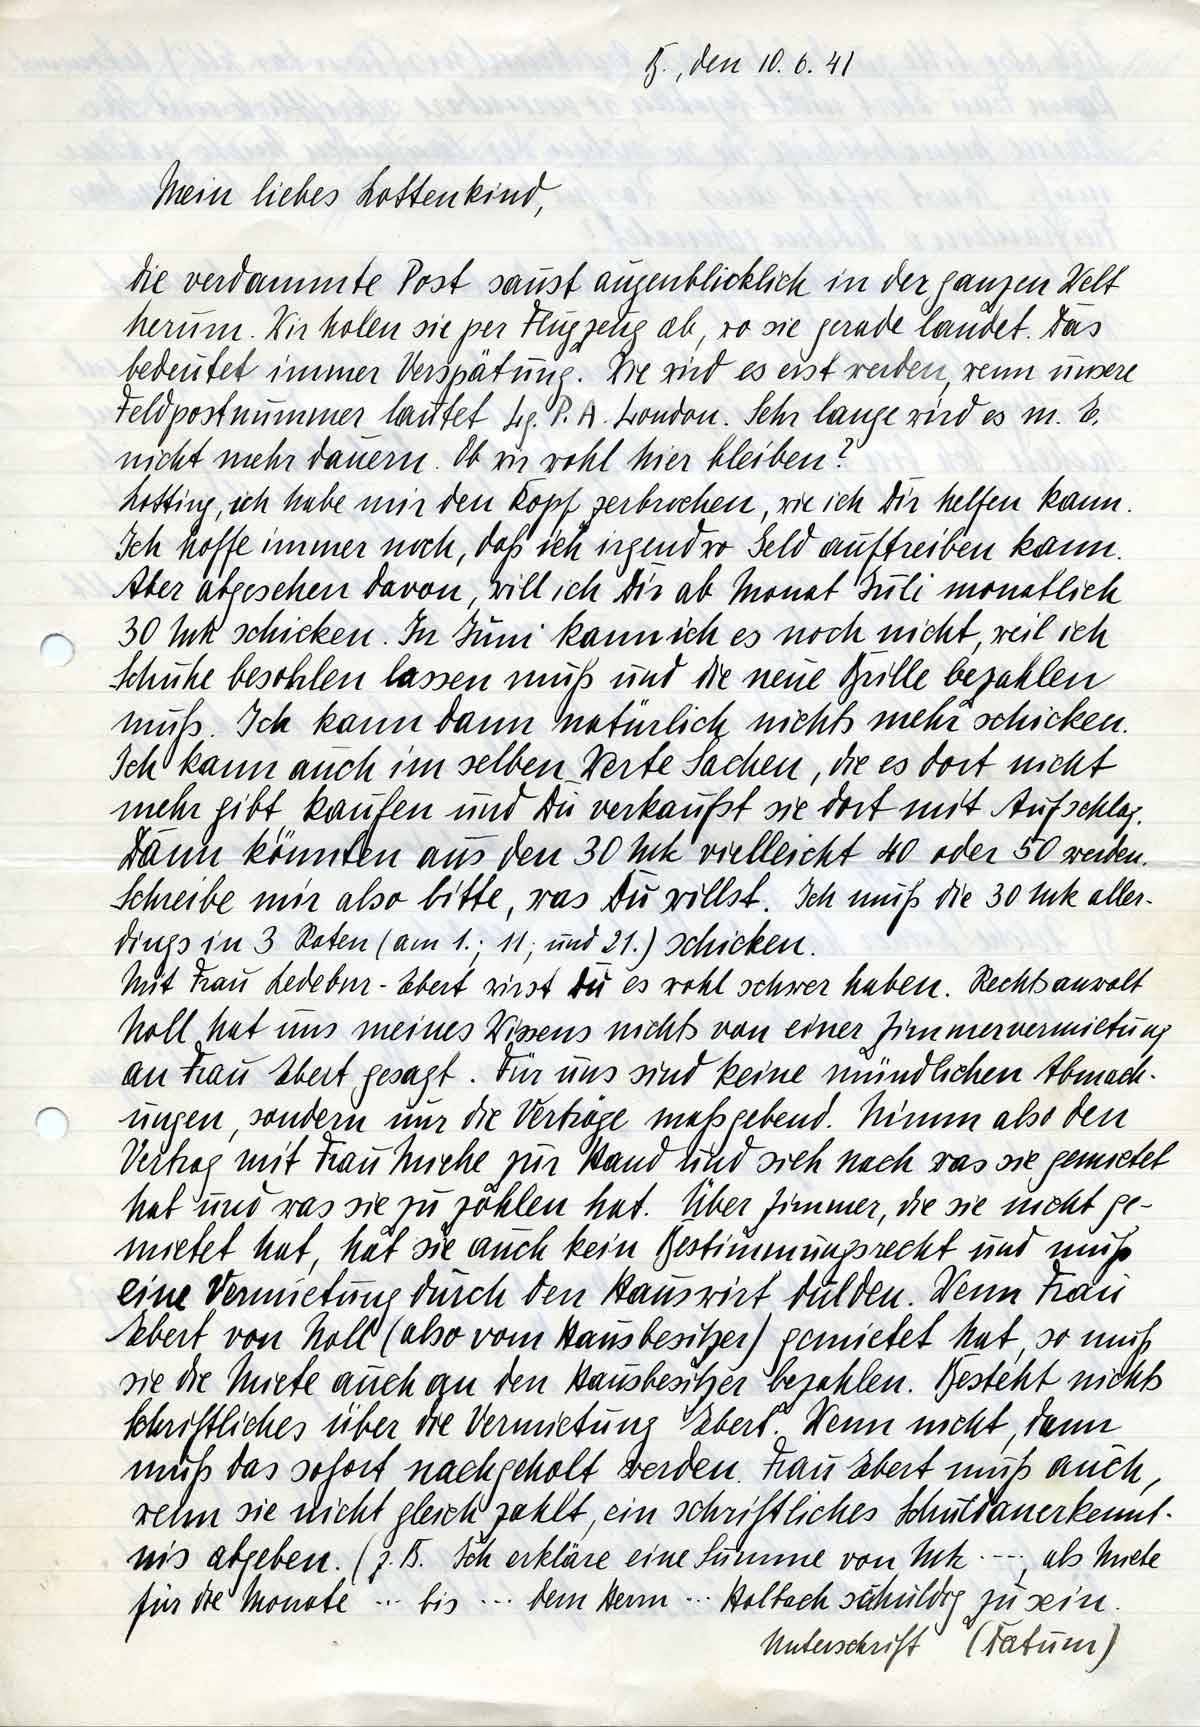 B., den 10.6.41
Mein liebes Lottenkind,
die verdammte Post saust augenblicklich in der ganzen Welt
herum. Wir holen sie per Flugzeug ab, wo sie gerade landet. Das
bedeutet immer Verspätung. Wie wird es erst werden, wenn unsere
Feldpostnummer lautet Lg. P. A. London. Sehr lange wird es m. E.
nicht mehr dauern. Ob wir wohl hier bleiben?
Lotting, ich habe mir den Kopf zerbrochen, wie ich Dir helfen kann.
Ich hoffe immer noch, daß ich irgendwo Geld auftreiben kann.
Aber abgesehen davon, will ich Dir ab Monat Juli monatlich
30 Mk schicken. In Juni kann ich es noch nicht, weil ich
Schuhe besohlen lassen muß und die neue Brille bezahlen
muß. Ich kann dann natürlich nichts mehr schicken.
Ich kann auch im selben Werte Sachen, die es dort nicht
mehr gibt kaufen und Du verkaufst sie dort mit Aufschlag.
Dann könnten aus den 30 Mk vielleicht 40 oder 50 werden.
Schreibe mir also bitte, was Du willst. Ich muß die 30 Mk aller-
dings in 3 Raten (am 1.; 11; und 21.) schicken.
Mit Frau Ledebur-Ebert wirst Du es wohl schwer haben. Rechtsanwalt
Noll hat uns meines Wissens nichts von einer Zimmervermietung
an Frau Ebert gesagt. Für uns sind keine mündlichen Abmach-
ungen, sondern nur die Verträge maßgebend. Nimm also den
Vertrag mit Frau Miehe zur Hand und sieh nach was sie gemietet
hat und was sie zu zahlen hat. Über Zimmer, die sie nicht ge-
mietet hat, hat sie auch kein Bestimmungsrecht und muß
eine Vermietung durch den Hauswirt dulden. Wenn Frau
Ebert von Noll (also vom Hausbesitzer) gemietet hat, so muß
sie die Miete auch an den Hausbesitzer bezahlen. Besteht nichts
Schriftliches über die Vermietung Ebert? Wenn nicht, dann
muß das sofort nachgeholt werden. Frau Ebert muß auch,
wenn sie nicht gleich zahlt, ein schriftliches Schuldanerkennt-
nis abgeben. (z. B. Ich erkläre eine Summe von Mk ---, als Miete
für die Monate ... bis ... dem Herrn ... Holbach schuldig zu sein.
Unterschrift (Datum)